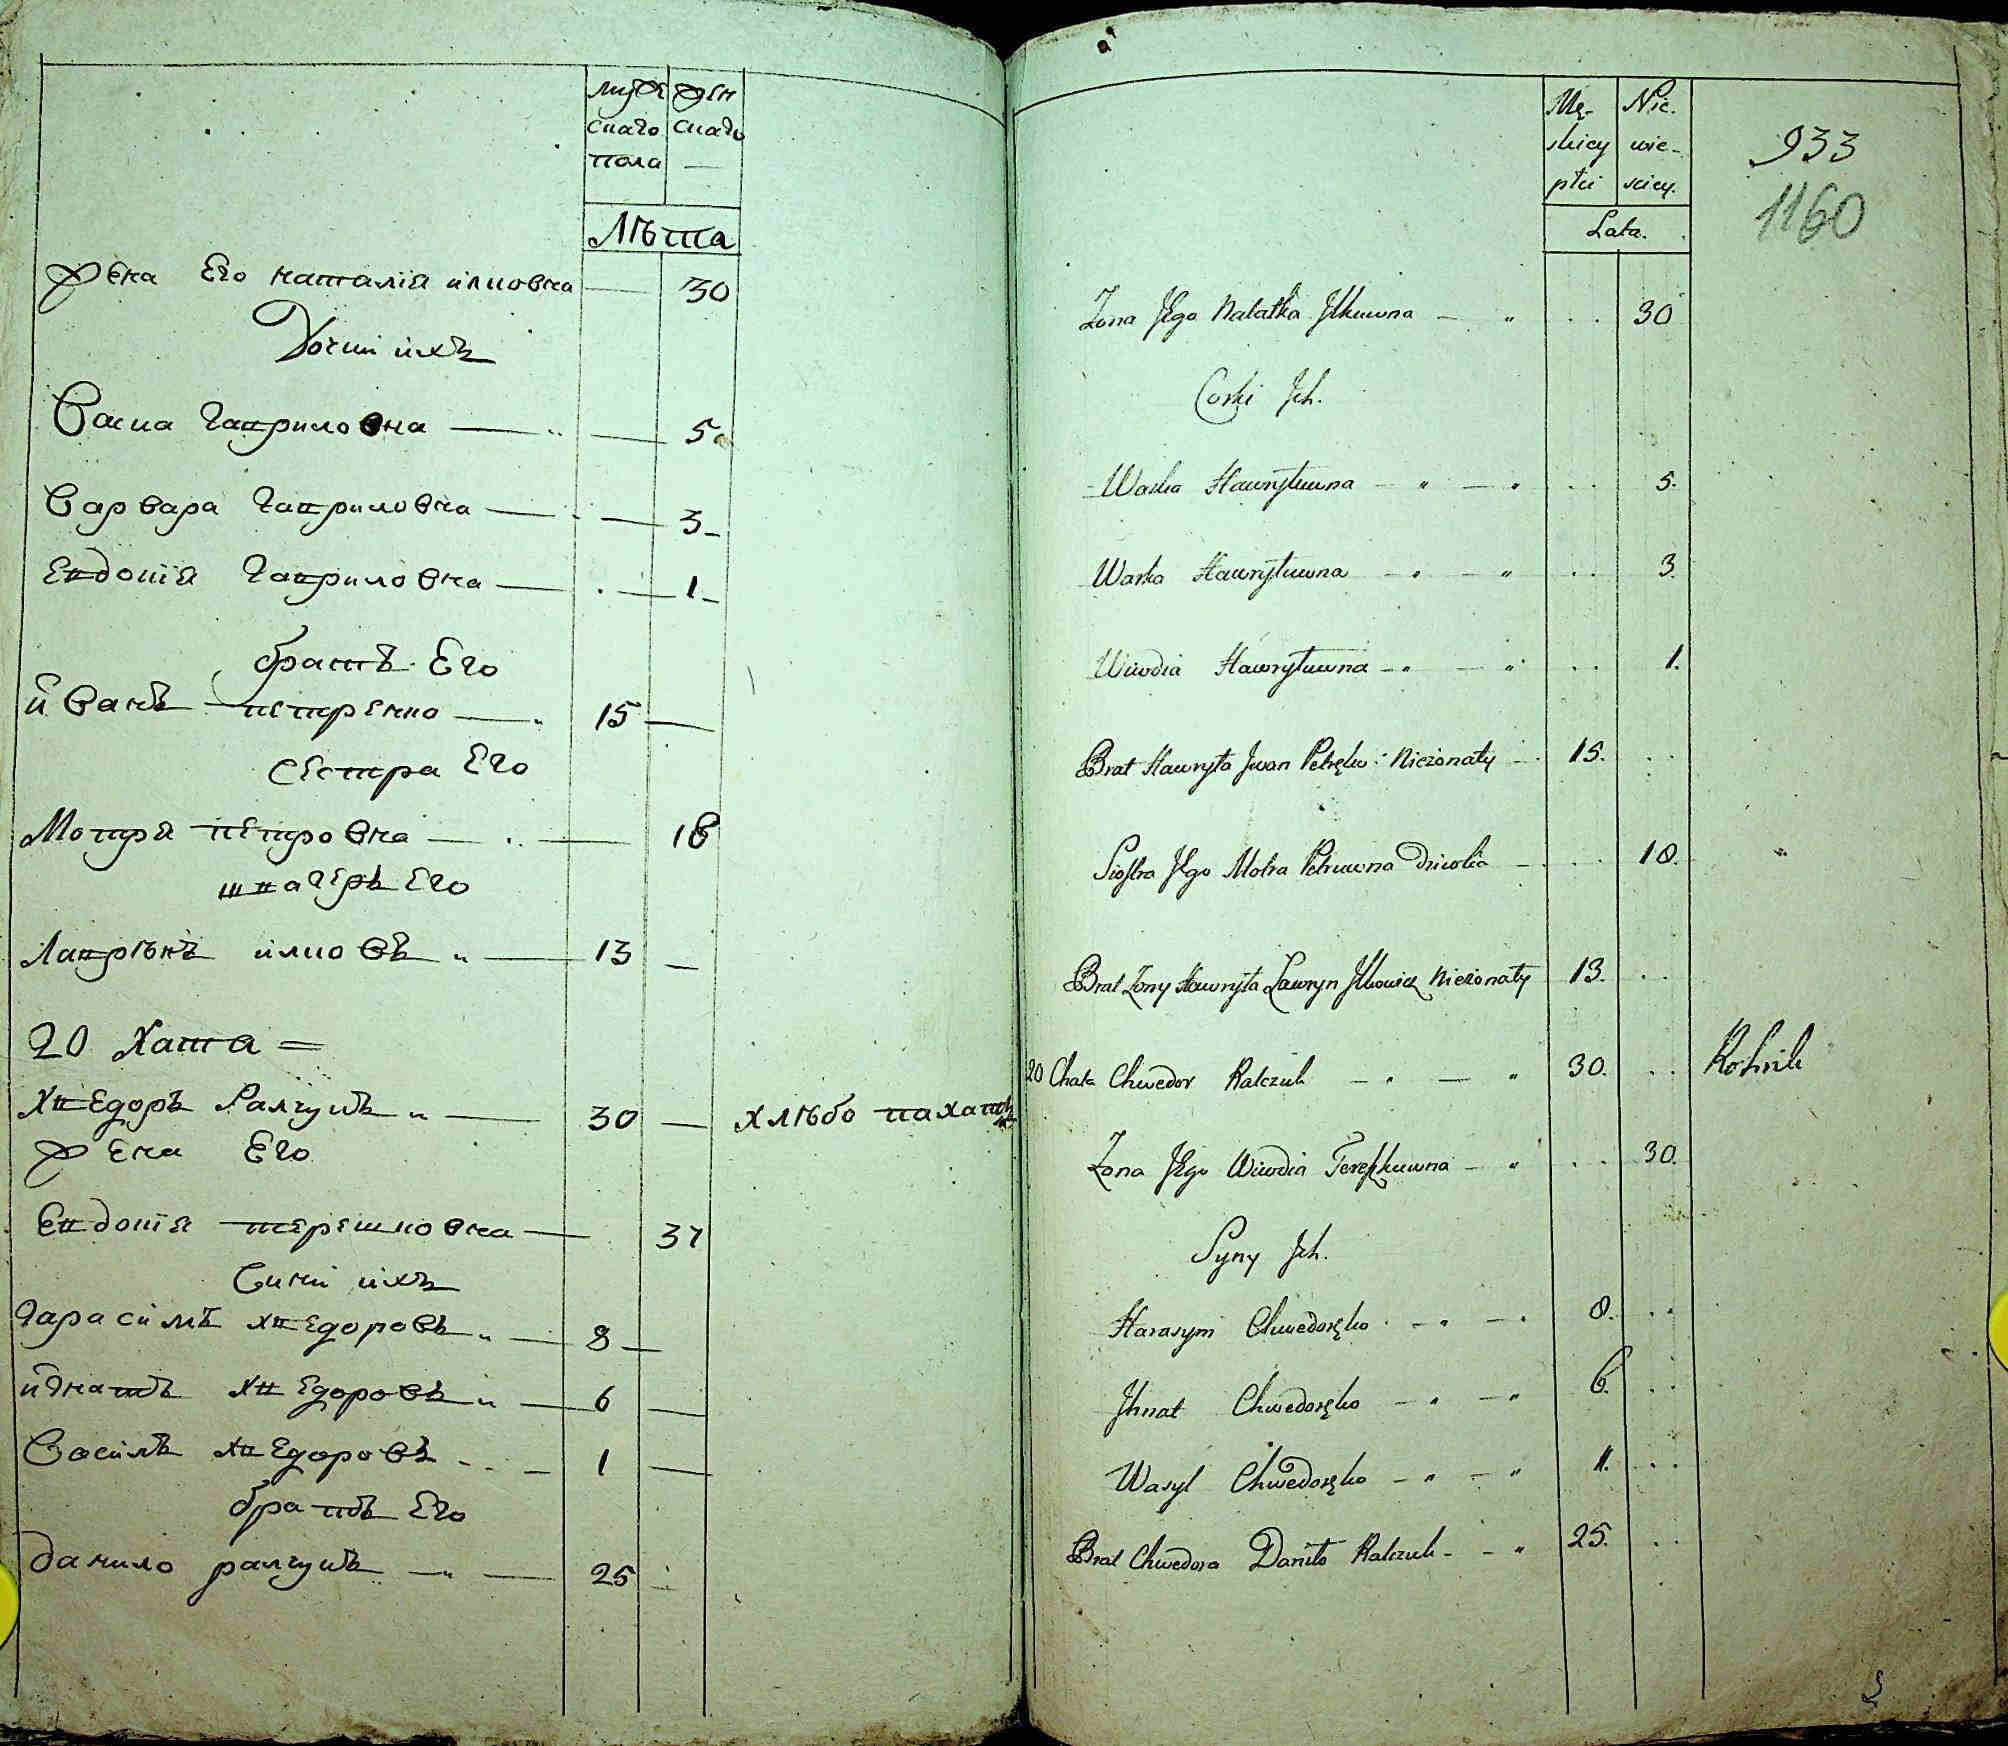 муж жен
скаго скаго
пола —
Лѣта
Жена Его наталія илковна — 30
Дочки ихъ
Васка Гавриловна — 5
Варвара Гавриловна — 3
Евдокія Гавриловна — 1
братъ Его
иванъ петренко — 15 —
сестра Его
Мотря петровна — 18
швагеръ Его
Лаврѣнъ илковъ — 13 —
20 Хата =
Хведоръ Ралчукъ — 30 — хлѣбо пахатъ
Жена Его
Евдокія терешковна — 37
Сини ихъ
Гарасимъ хведоровъ — 8 —
игнатъ хведоровъ — 6 —
Василъ хведоровъ — 1 —
братъ Его
данило ралчукъ — 25
Mę- Nie.
skiey wie-
płci sciey.
Lata.
933
1160
Zona Jego Natalka Jlkuwna — 30
Corki Jch.
Waska Hawryłuwna — 5.
Warka Hawryłuwna — 3.
Wiwdia Hawryłuwna — 1.
Brat Hawryła Jwan Petręko Nieżonaty — 15.
Siostra Jego Motra Petruwna Dziwka — 18.
Brat Zony Hawryła Ławryn Jlkowicz Nieżonaty 13.
20 Chata Chwedor Ralczuk — 30. Rolnik
Zona Jego Wiwdia Tereszkuwna — 30.
Syny Jch.
Harasym Chwedoręko — 8.
Jhnat Chwedoręko — 6.
Wasyl Chwedoręko — 1.
Brat Chwedora Daniło Ralczuk — 25.